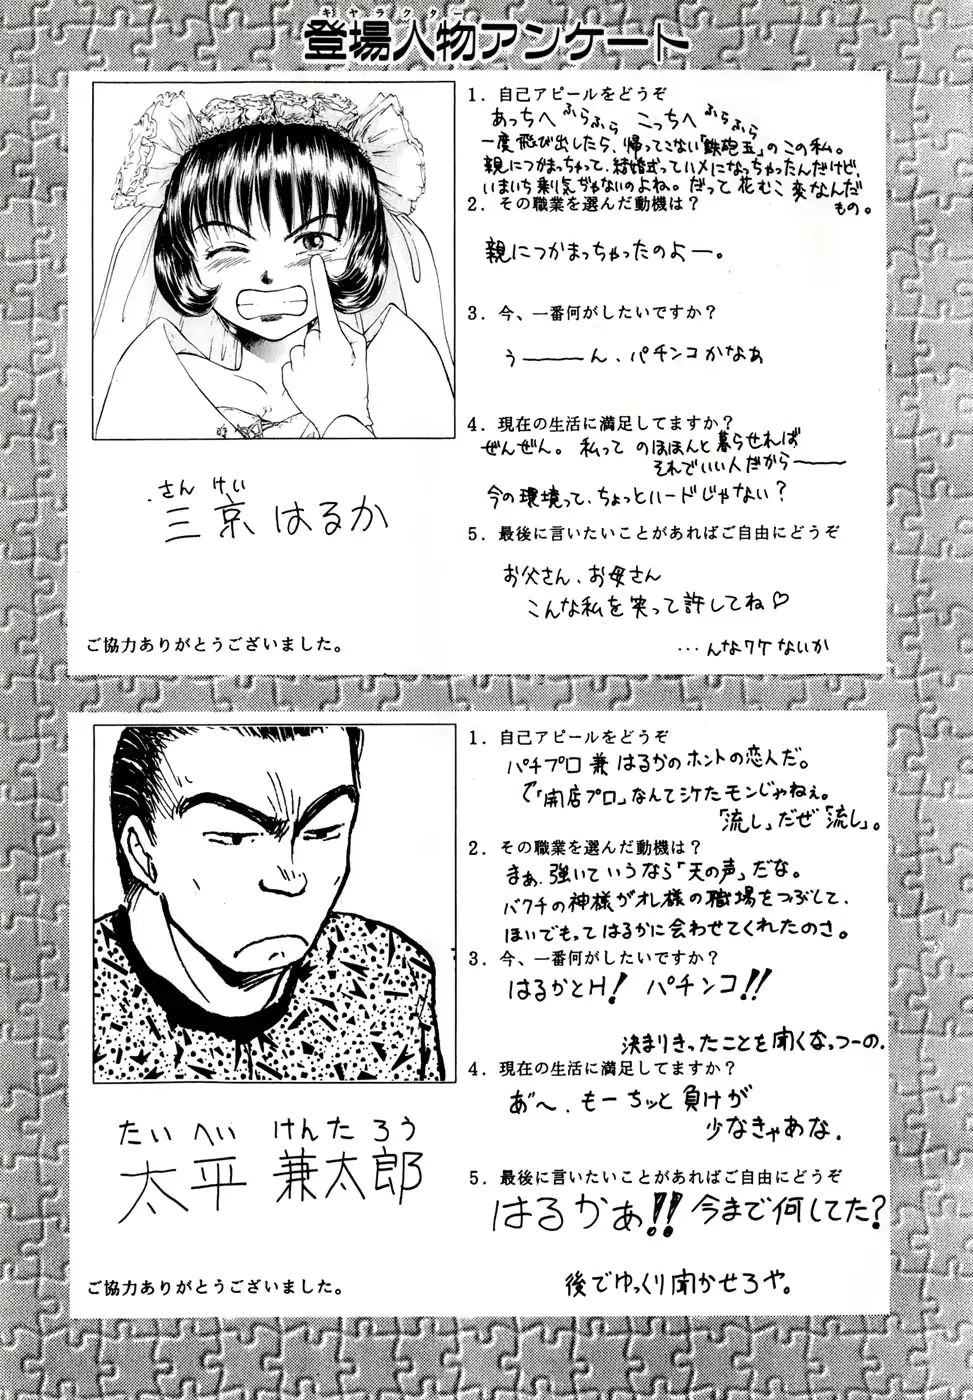 キャラクター
登場人物アンケート
1. 自己アピールをどうぞ
あっちへふらふら こっちへふらふら
一度飛び出したら、帰ってこない「鉄砲玉」のこの私。
親につかまっちゃって、結婚式ってハメになっちゃったんだけど、
いまいち乗り気がゃないのよね。だって花むこ変なんだ
もの。
2. その職業を選んだ動機は?
親につかまっちゃったのよー。
3. 今、一番何がしたいですか?
う———ん、パチンコかなあ
4. 現在の生活に満足してますか?
ぜんぜん。私って のほほんと暮らせれば
それでいい人だから———
今の環境って、ちょっとハードじゃない?
5. 最後に言いたいことがあればご自由にどうぞ
お父さん、お母さん
こんな私を笑って許してね♡
…んなワケないか
さん けい
三京 はるか
ご協力ありがとうございました。
1. 自己アピールをどうぞ
パチプロ兼はるかのホントの恋人だ。
で「開店プロ」なんてシケたモンじゃねぇ。
「流し」だぜ「流し」。
2. その職業を選んだ動機は?
まぁ、強いていうなら「天の声」だな。
バクチの神様がオレ様の職場をつぶして、
ほいでもってはるかに会わせてくれたのさ。
3. 今、一番何がしたいですか?
はるかとH! パチンコ!!
決まりきったことを聞くなっつーの.
4. 現在の生活に満足してますか?
あ゛〜、もーちッと負けが
少なきゃあな.
5. 最後に言いたいことがあればご自由にどうぞ
はるかぁ!! 今まで何してた?
後でゆっくり聞かせろや。
たい へい けんた ろう
太平 兼太郎
ご協力ありがとうございました。